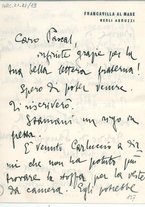 FRANCAVILLA AL MARE
NEGLI ABRUZZI
Caro Pascal,
infinite grazie per la
tua bella lettera fraterna!
Spero di poter venire.
Ti riscriverò.
Stamani un rigo in
fretta.
È venuto Carluccio a dir
mi che non ha potuto più
trovare la stoffa per la veste
da camera. Egli potrebbe